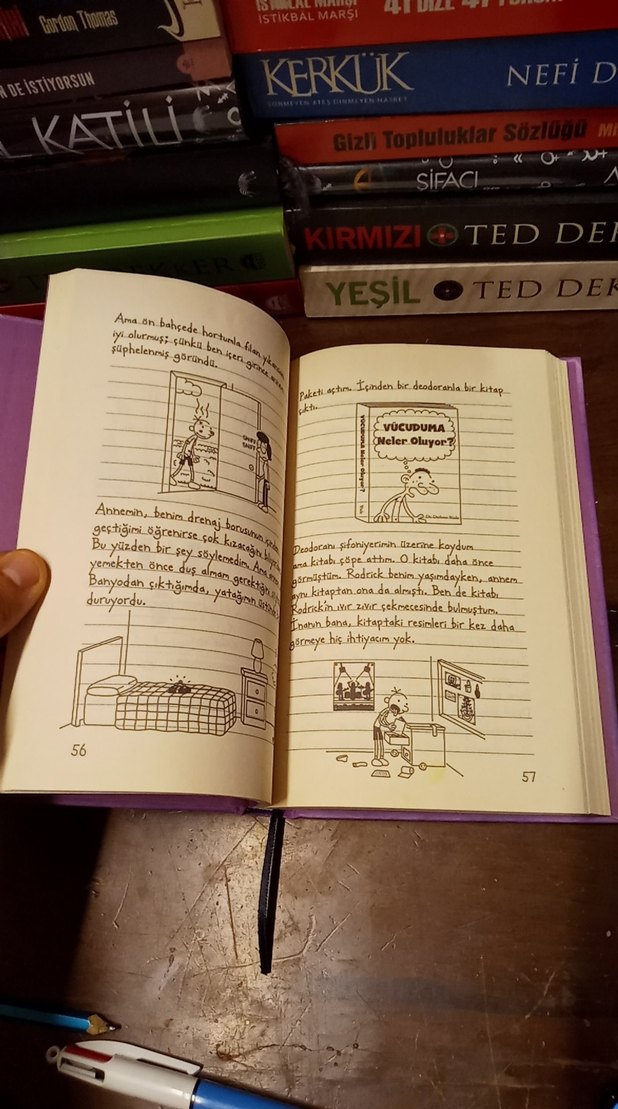 Gordon Thomas
N DE İSTİYORSUN
L KATİLİ
İSTİKLAL MARŞI
İSTİKBAL MARŞI
41 DİZE 41 YORUM
KERKÜK
SÖNMEYEN ATEŞ DİNMEYEN HASRET
NEFİ D
Gizli Topluluklar Sözlüğü
ŞİFACI
KIRMIZI TED DEK
YEŞİL TED DEK
Ama ön bahçede hortumla filan yıkansam
iyi olurmuş; çünkü ben içeri girince annem
şüphelenmiş göründü.
SNIFF
SNIFF
Annemin, benim drenaj borusunun içinden
geçtiğimi öğrenirse çok kızacağını
Bu yüzden bir şey söylemedim. Ama annem
yemekten önce duş almam gerektiğini
Banyodan çıktığımda, yatağımın üstünde
duruyordu.
56
Paketi açtım. İçinden bir deodoranla bir kitap
çıktı.
VÜCUDUMA Neler Oluyor?
VÜCUDUMA
Neler Oluyor?
Deodoranı şifoniyerimin üzerine koydum
ama kitabı çöpe attım. O kitabı daha önce
görmüştüm. Rodrick benim yaşımdayken, annem
aynı kitaptan ona da almıştı. Ben de kitabı
Rodrick'in ıvır zıvır çekmecesinde bulmuştum.
İnanın bana, kitaptaki resimleri bir kez daha
görmeye hiç ihtiyacım yok.
57